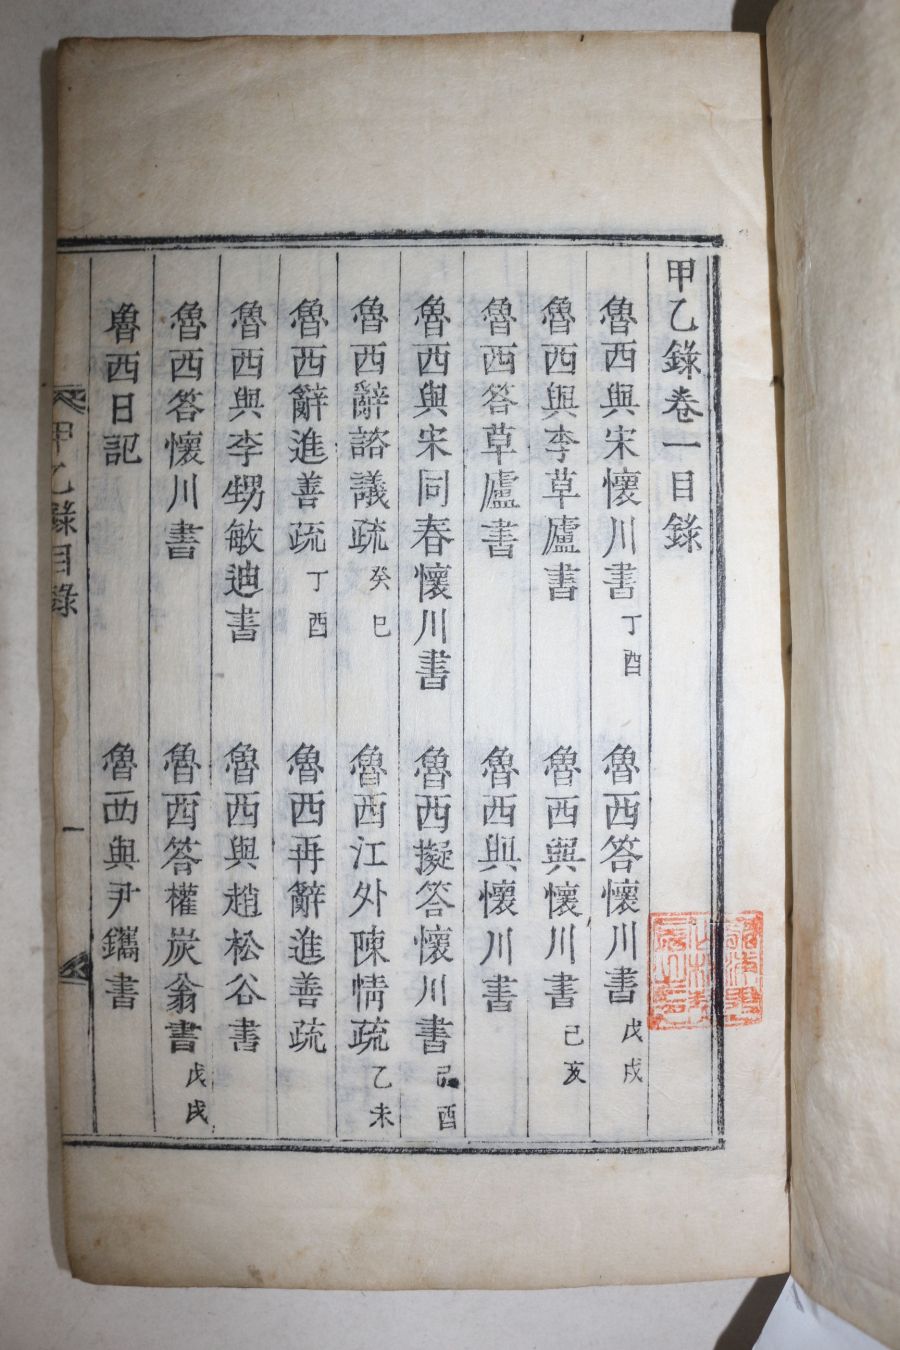 甲乙錄卷一目錄
魯西與宋懷川書 丁酉 魯西答懷川書 戊戌
魯西與李草廬書 魯西與懷川書 己亥
魯西答草廬書 魯西與懷川書
魯西與宋同春懷川書 魯西擬答懷川書 己酉
魯西辭諮議疏 癸巳 魯西江外陳情疏 乙未
魯西辭進善疏 丁酉 魯西再辭進善疏
魯西與李甥敏迪書 魯西與趙松谷書
魯西答懷川書 魯西答權炭翁書 戊戌
魯西日記 魯西與尹鑴書
甲乙錄目錄 一